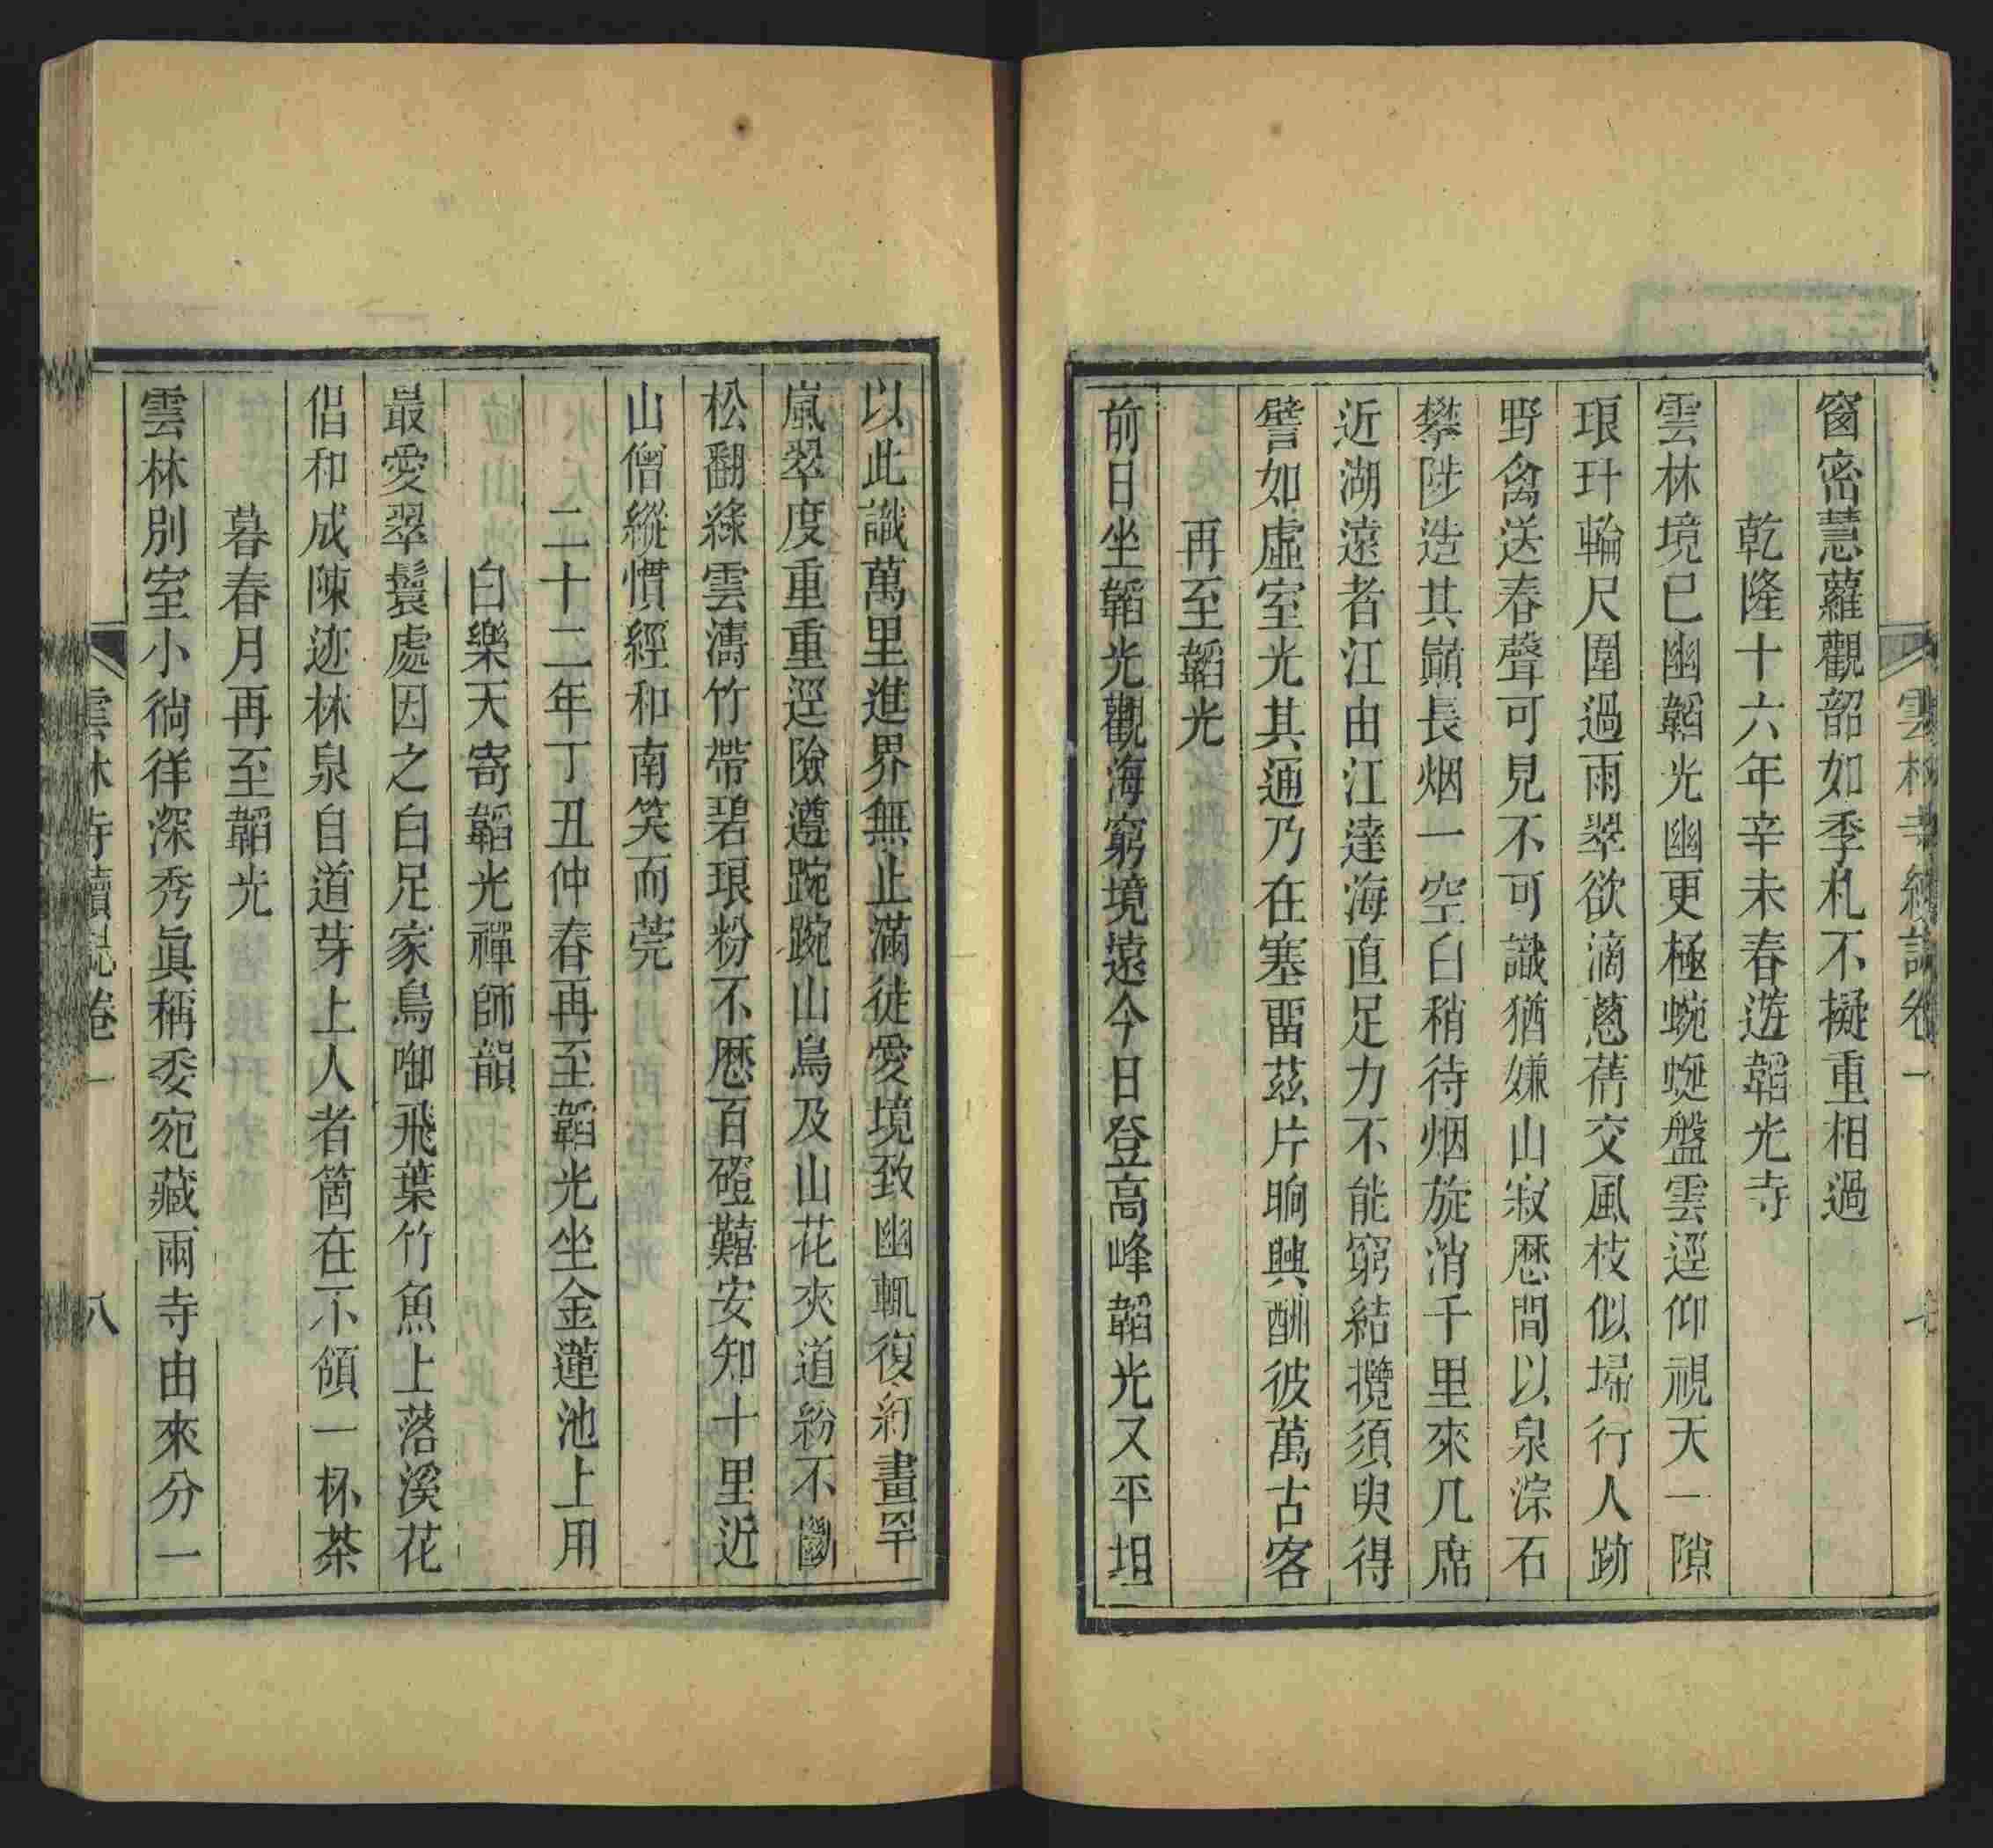 雲林寺續記卷一 七
窗密慧蘿觀韶如季札不擬重相過
乾隆十六年辛未春遊韜光寺
雲林境已幽韜光幽更極蜿蜒盤雲逕仰視天一隙
琅玕輪尺圍過雨翠欲滴蔥蒨交風枝似埽行人跡
野禽送春聲可見不可識猶嫌山寂歷間以泉淙石
攀陟造其巔長烟一空白稍待烟旋消千里來几席
近湖遠者江由江達海直足力不能窮結攬須臾得
譬如虛室光其通乃在塞畱茲片晌興酬彼萬古客
再至韜光
前日坐韜光觀海窮境遠今日登高峰韜光又平坦
以此識萬里進界無止滿徒愛境致幽輒復紆畫罕
嵐翠度重重逕險遵踠踠山鳥及山花夾道紛不斷
松翻綠雲濤竹帶碧琅粉不歷百磴艱安知十里近
山僧縱慣經和南笑而莞
二十二年丁丑仲春再至韜光坐金蓮池上用
白樂天寄韜光禪師韻
最愛翠鬟處因之白足家鳥啣飛葉竹魚上落溪花
倡和成陳迹林泉自道芽上人者箇在不領一杯茶
暮春月再至韜光
雲林別室小徜徉深秀眞稱委宛藏兩寺由來分一
雲林寺續記卷一 八